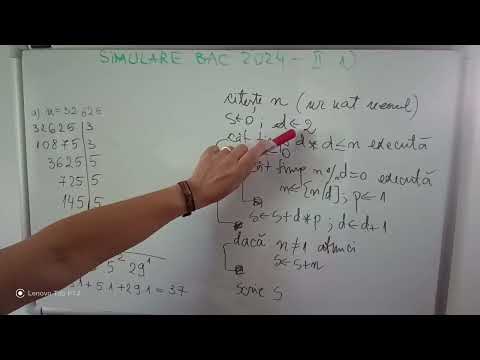 SIMULARE BAC 2024 - II 1)
a) n = 32 625
32625 | 3
10875 | 3
3625 | 5
725 | 5
145 | 5
5² 29¹
1 + 5.1 + 29.1 = 37
citește n (nr nat nenul)
S←0; d←2
cât timp d * d ≤ n execută
←0
timp n % d = 0 execută
n←[n/d]; p←1
S←S+d*p; d←d+1
dacă n≠1 atunci
S←S+n
scrie S
Lenovo Tab P12